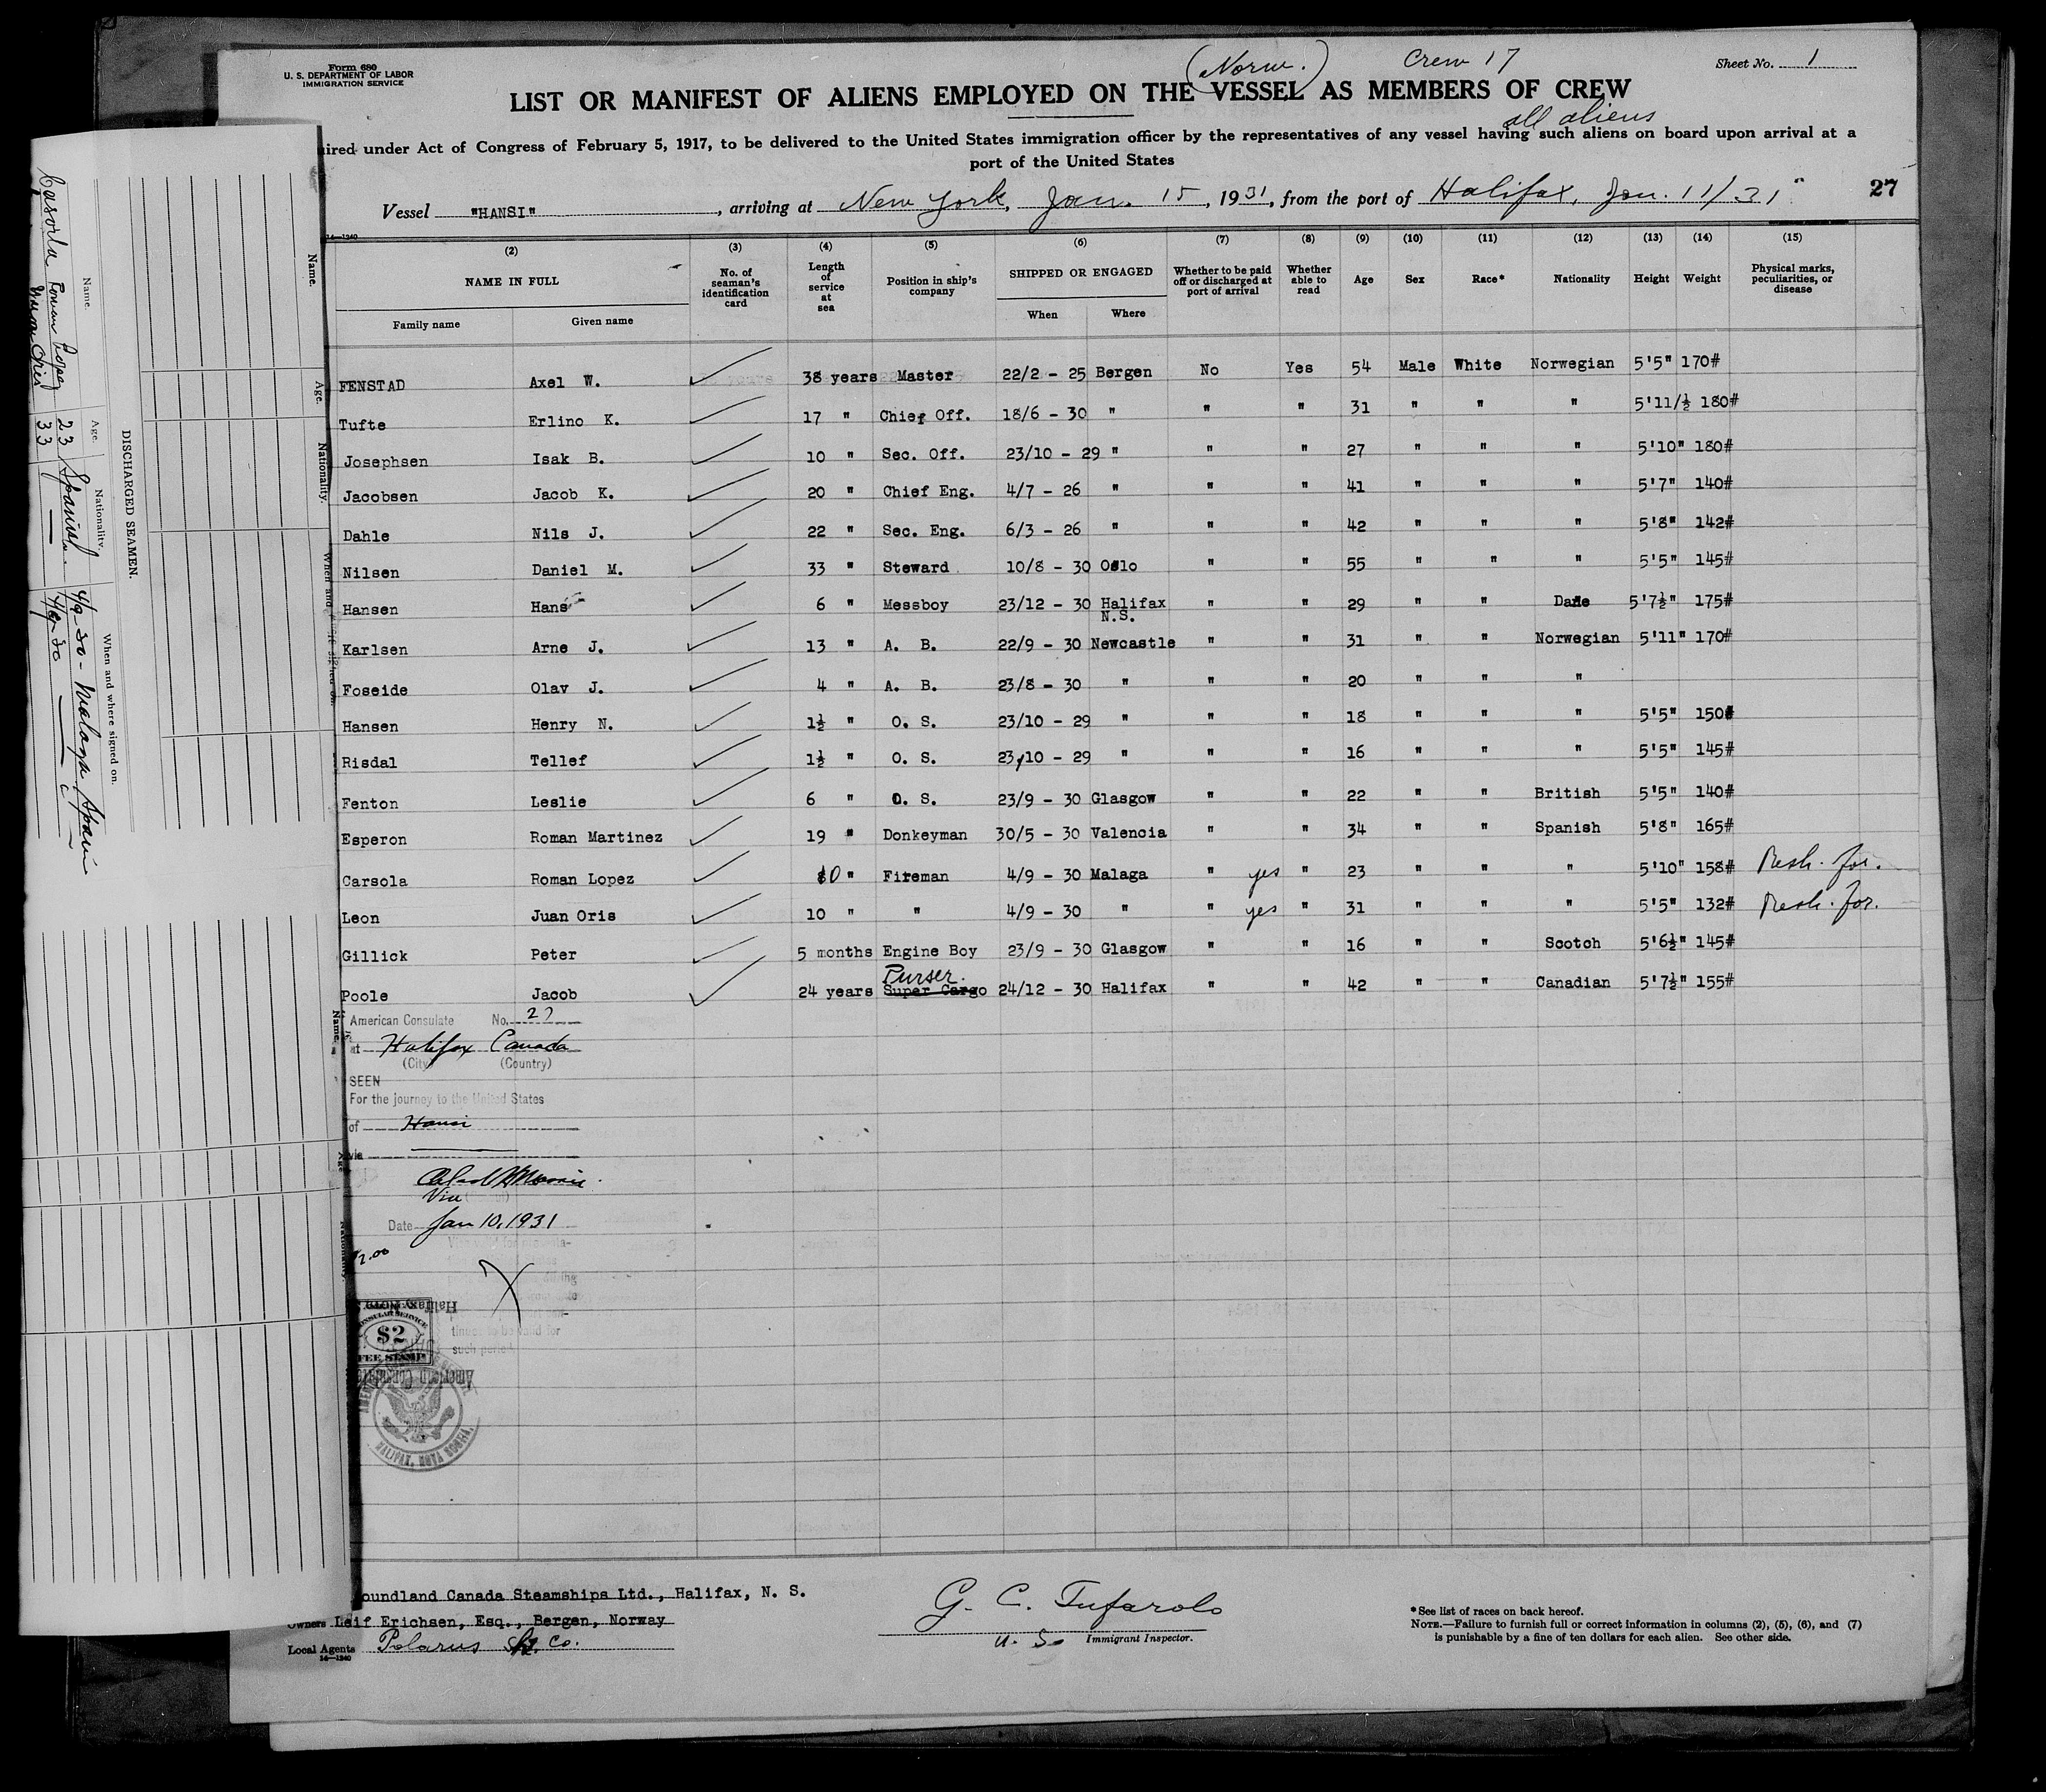 Form 680
U. S. DEPARTMENT OF LABOR
IMMIGRATION SERVICE
(Norw.)
Crew 17
Sheet No. 1
LIST OR MANIFEST OF ALIENS EMPLOYED ON THE VESSEL AS MEMBERS OF CREW
all aliens
ired under Act of Congress of February 5, 1917, to be delivered to the United States immigration officer by the representatives of any vessel having such aliens on board upon arrival at a
port of the United States
Vessel "HANSI", arriving at New York, Jan. 15, 1931, from the port of Halifax, Jan. 11/31
27
14—1240
(2) (3) (4) (5) (6) (7) (8) (9) (10) (11) (12) (13) (14) (15)
NAME IN FULL No. of seaman's identification card Length of service at sea Position in ship's company SHIPPED OR ENGAGED Whether to be paid off or discharged at port of arrival Whether able to read Age Sex Race* Nationality Height Weight Physical marks, peculiarities, or disease
Family name Given name When Where
FENSTAD Axel W. 38 years Master 22/2 - 25 Bergen No Yes 54 Male White Norwegian 5'5" 170#
Tufte Erlino K. 17 " Chief Off. 18/6 - 30 " " " 31 " " " 5'11/½ 180#
Josephsen Isak B. 10 " Sec. Off. 23/10 - 29 " " " 27 " " " 5'10" 180#
Jacobsen Jacob K. 20 " Chief Eng. 4/7 - 26 " " " 41 " " " 5'7" 140#
Dahle Nils J. 22 " Sec. Eng. 6/3 - 26 " " " 42 " " " 5'8" 142#
Nilsen Daniel M. 33 " Steward 10/8 - 30 Oslo " " 55 " " " 5'5" 145#
Hansen Hans 6 " Messboy 23/12 - 30 Halifax N.S. " " 29 " " Dane 5'7½" 175#
Karlsen Arne J. 13 " A. B. 22/9 - 30 Newcastle " " 31 " " Norwegian 5'11" 170#
Foseide Olav J. 4 " A. B. 23/8 - 30 " " " 20 " " "
Hansen Henry N. 1½ " O. S. 23/10 - 29 " " " 18 " " " 5'5" 150#
Risdal Tellef 1½ " O. S. 23/10 - 29 " " " 16 " " " 5'5" 145#
Fenton Leslie 6 " O. S. 23/9 - 30 Glasgow " " 22 " " British 5'5" 140#
Esperon Roman Martinez 19 " Donkeyman 30/5 - 30 Valencia " " 34 " " Spanish 5'8" 165#
Carsola Roman Lopez 10 " Fireman 4/9 - 30 Malaga " yes " 23 " " " 5'10" 158# Resh. for.
Leon Juan Oris 10 " " 4/9 - 30 " " yes " 31 " " " 5'5" 132# Resh. for.
Gillick Peter 5 months Engine Boy 23/9 - 30 Glasgow " " 16 " " Scotch 5'6½" 145#
Purser.
Poole Jacob 24 years Super Cargo 24/12 - 30 Halifax " " 42 " " Canadian 5'7½" 155#
American Consulate No. 27
at Halifax Canada
(City) (Country)
SEEN
For the journey to the United States
of Hansi
via
Date Jan 10, 1931
2.00
Halifax, Nova S
CONSULAR SERVICE
$2
FEE STAMP
tinues to be valid for
such period
American Consulate
HALIFAX, NOVA SCOTIA
oundland Canada Steamships Ltd., Halifax, N. S.
Owners Leif Erichsen, Esq., Bergen, Norway
Local Agents Polarus Co.
14—1240
G. C. Tufarolo
U. S. Immigrant Inspector.
*See list of races on back hereof.
NOTE.—Failure to furnish full or correct information in columns (2), (5), (6), and (7)
is punishable by a fine of ten dollars for each alien. See other side.
DISCHARGED SEAMEN.
Name. Age. Nationality. When and where signed on.
Casorla Roman Lopez 23 Spanish 4/9-30 - Malaga, Spain
33 4/9-30
Name. Age. Nationality.